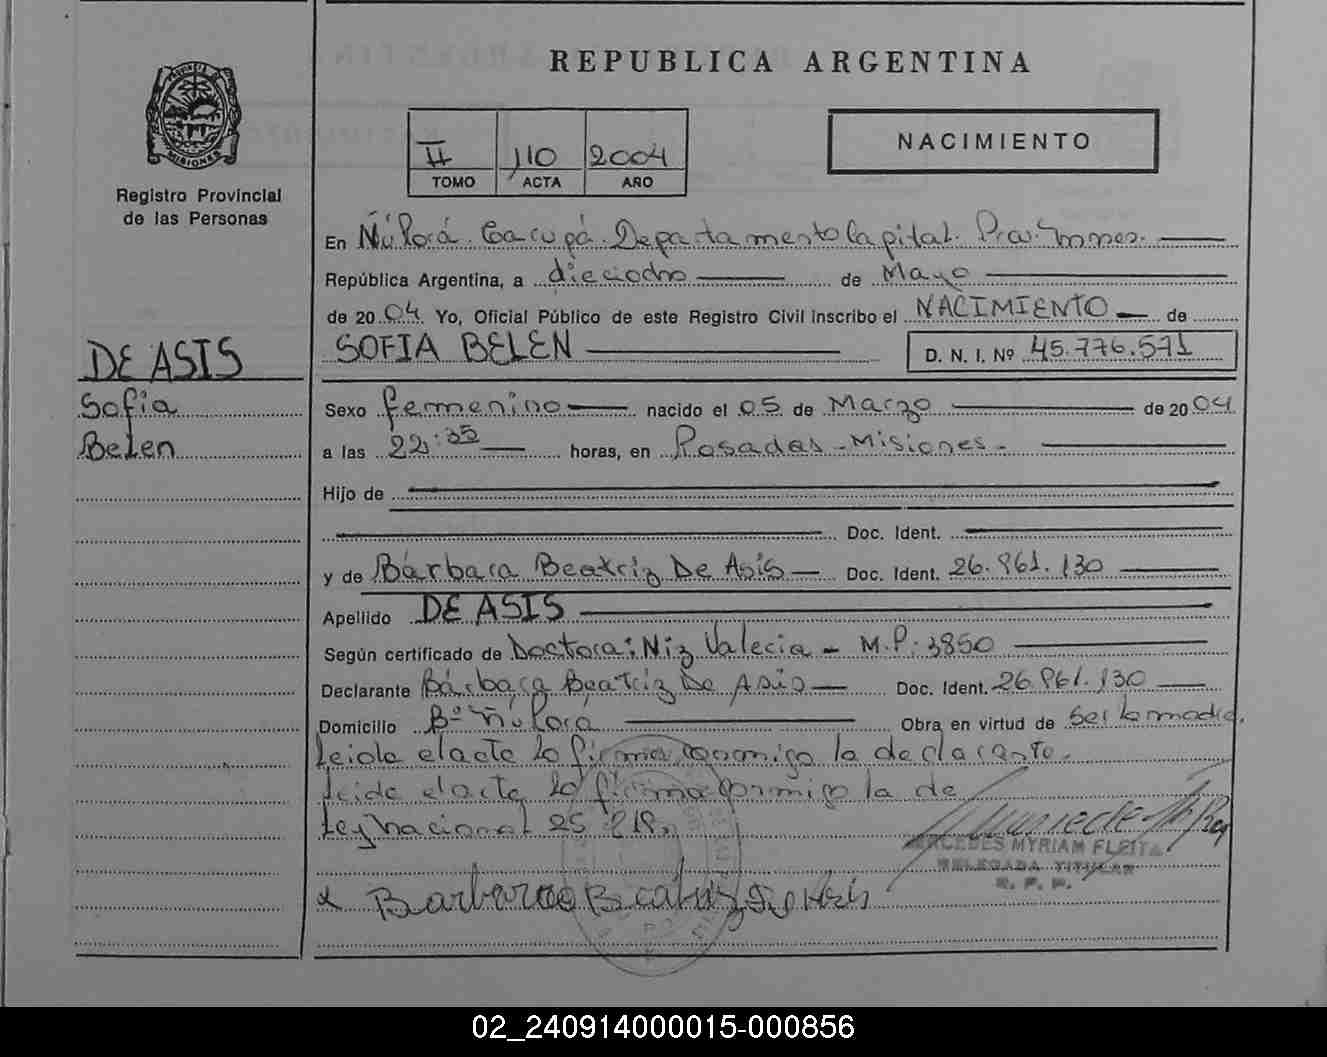 REPUBLICA ARGENTINA
PROVINCIA DE MISIONES
Registro Provincial
de las Personas
II 110 2004
TOMO ACTA AÑO
NACIMIENTO
En Ñu Porá. Garupá. Departamento Capital. Prov. Mnes.
República Argentina, a dieciocho de Mayo
de 2004. Yo, Oficial Público de este Registro Civil inscribo el NACIMIENTO de
SOFIA BELEN D. N. I. Nº 45.776.571
DE ASIS
Sofia
Belen
Sexo femenino nacido el 05 de Marzo de 2004
a las 22:35 horas, en Posadas - Misiones -
Hijo de
Doc. Ident.
y de Bárbara Beatriz De Asis Doc. Ident. 26.861.130
Apellido DE ASIS
Según certificado de Doctora: Niz Valeria - M.P: 3850
Declarante Bárbara Beatriz De Asis Doc. Ident. 26.861.130
Domicilio Bº Ñu Porá Obra en virtud de ser la madre.
Leida el acta la firma conmigo la declarante.
Leida el acta la firma conmigo la de
Ley Nacional 25.818.
MERCEDES MYRIAM FLEITA
DELEGADA TITULAR
R. P. P.
x Barbara Beatriz De Asis
02_240914000015-000856